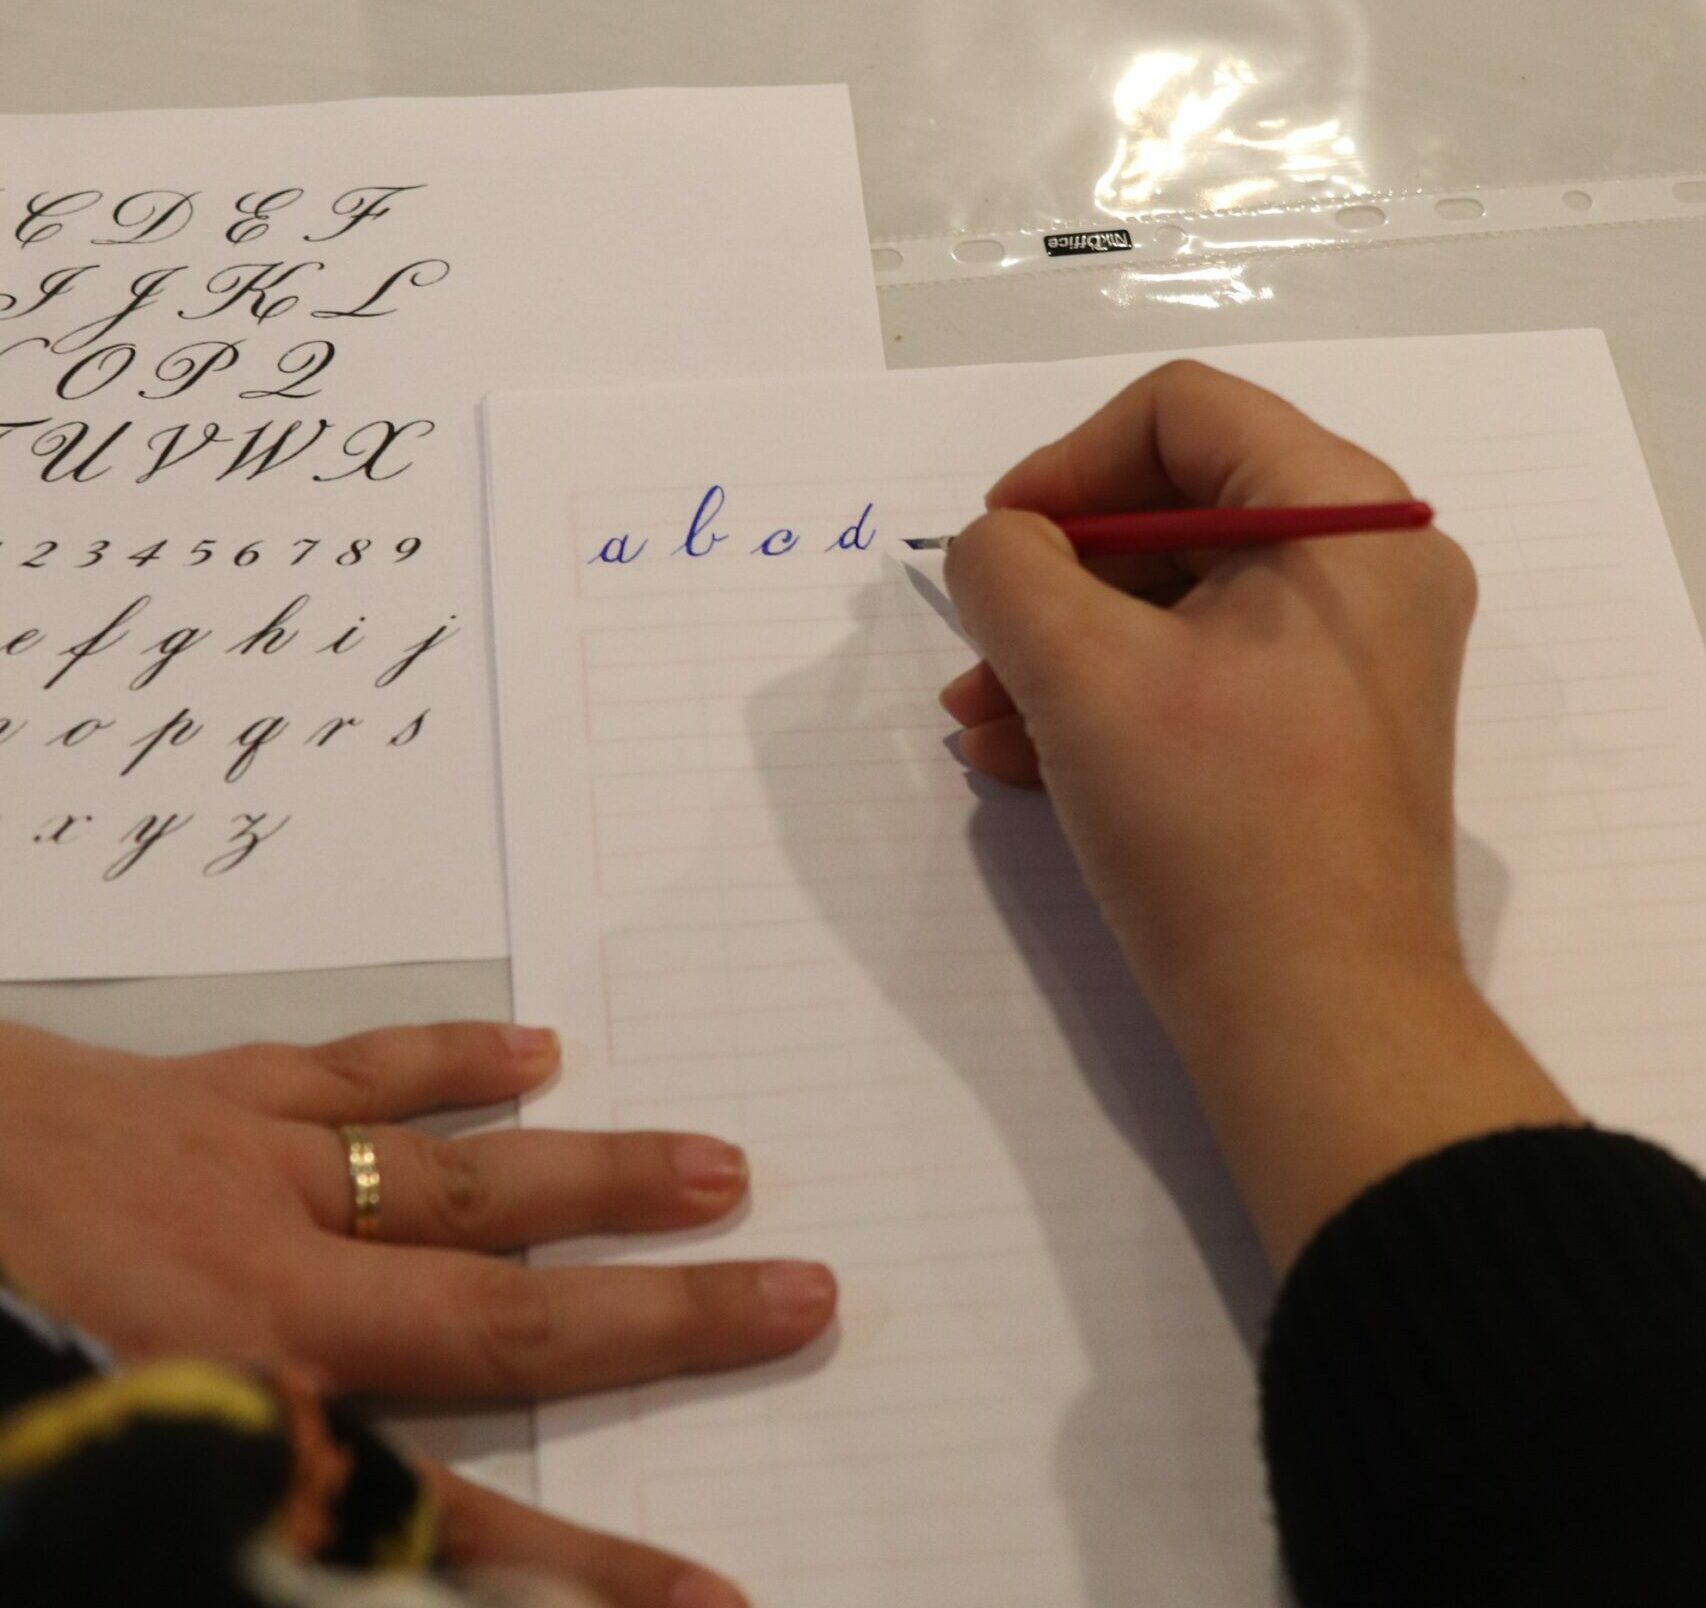 C D E F
I J K L
O P Q
T U V W X
2 3 4 5 6 7 8 9
e f g h i j
n o p q r s
x y z
a b c d
NikOffice